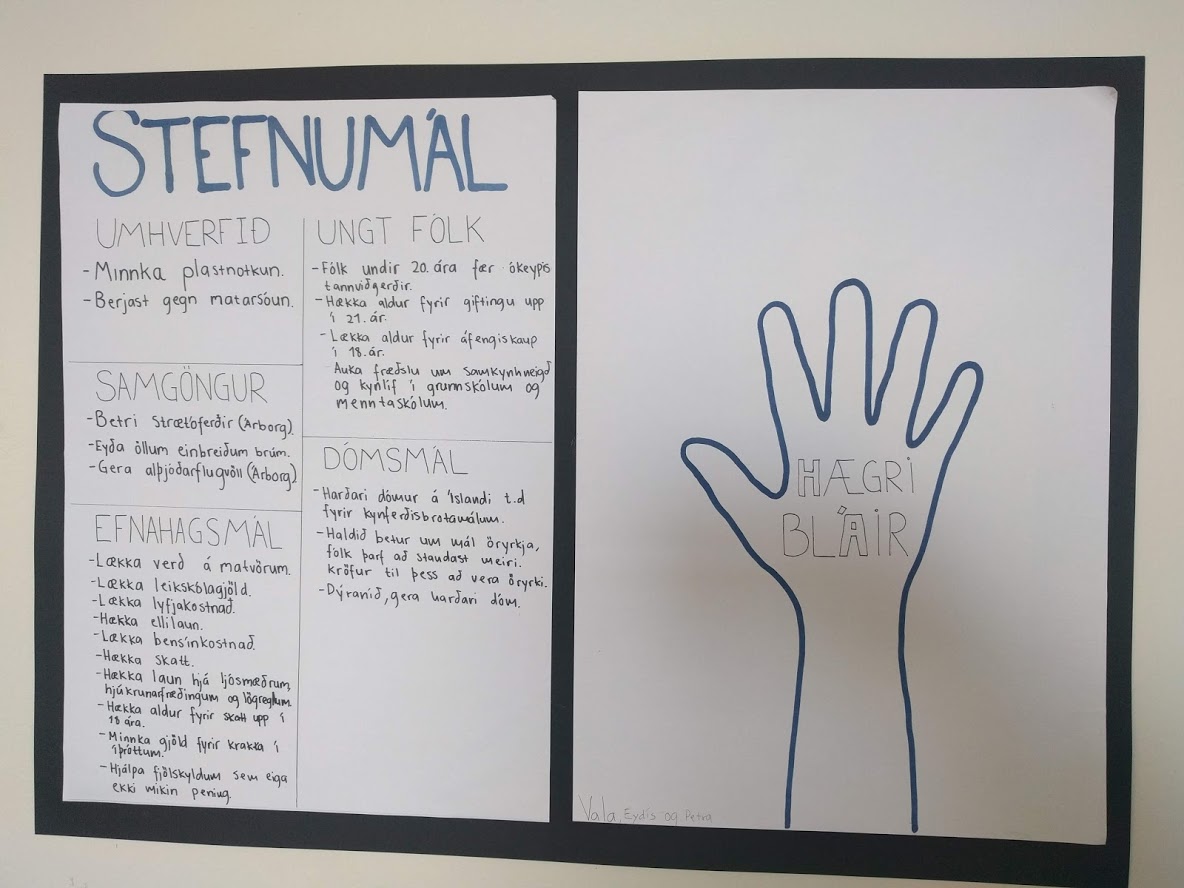 STEFNUMÁL
UMHVERFIÐ
- Minnka plastnotkun.
- Berjast gegn matarsóun.
SAMGÖNGUR
- Betri Strætóferðir (Árborg).
- Eyða öllum einbreiðum brúm.
- Gera alþjóðarflugvöll (Árborg)
EFNAHAGSMÁL
- Lækka verð á matvörum.
- Lækka leikskólagjöld.
- Lækka lyfjakostnað.
- Hækka ellilaun.
- Lækka bensínkostnað.
- Hækka skatt.
- Hækka laun hjá ljósmæðrum,
hjúkrunarfræðingum og lögreglum
- Hækka aldur fyrir skatt upp í
18 ára.
- Minnka gjöld fyrir krakka í
íþróttum.
- Hjálpa fjölskyldum sem eiga
ekki mikin pening.
UNGT FÓLK
- Fólk undir 20. ára fær ókeypis
tannviðgerðir.
- Hækka aldur fyrir giftingu upp
í 21. ár.
- Lækka aldur fyrir áfengiskaup
í 18. ár.
Auka fræðslu um samkynhneigð
og kynlíf í grunnskólum og
menntaskólum.
DÓMSMÁL
- Harðari dómur á Íslandi t.d
fyrir kynferðisbrotamálum.
- Haldið betur um mál öryrkja,
fólk þarf að standast meiri
kröfur til þess að vera öryrki.
- Dýraníð, gera harðari dóm.
HÆGRI
BLÁIR
Vala, Eydís og Petra